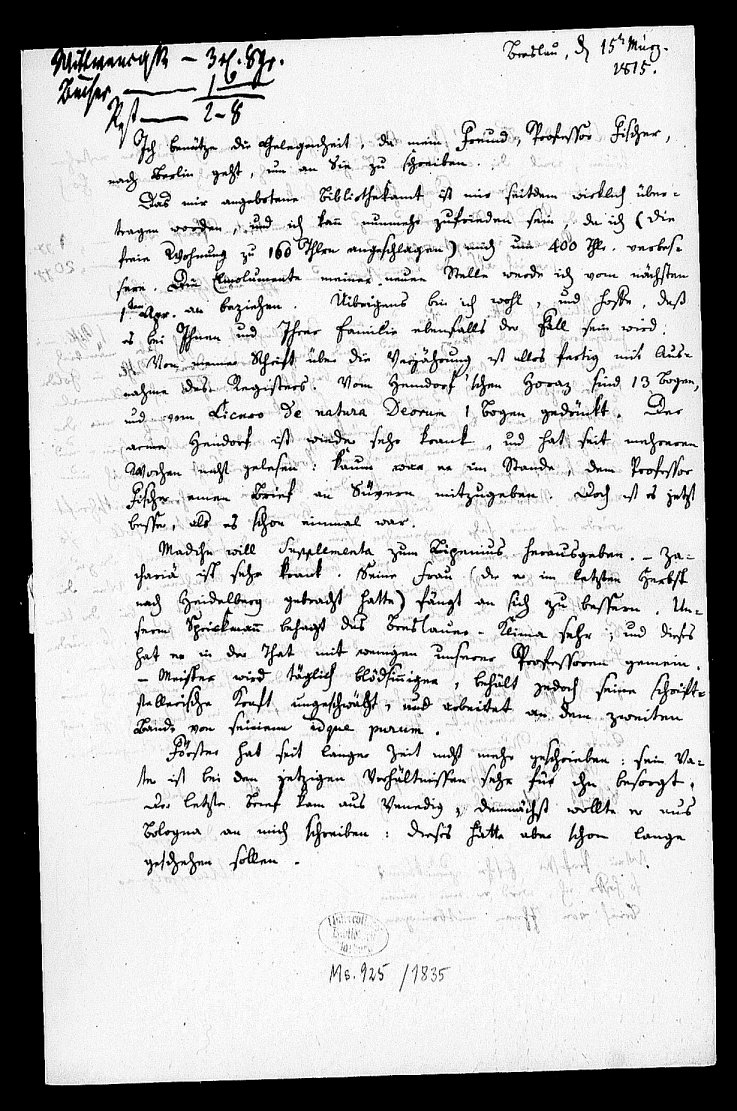 – 3 rl. 8 gr.
Bücher — 1
Rest — 2–8
Breslau, d. 15t März.
1815.
Ich benütze die Gelegenheit, da mein Freund, Professor Fischer,
nach Berlin geht, um an Sie zu schreiben.
Das mir angebotene Bibliothekamt ist mir seitdem wirklich über-
tragen worden, und ich kann nunmehr zufrieden sein, da ich (die
freie Wohnung zu 160 Thlrn angeschlagen) mich um 400 Thlr. verbes-
sere. Die Emolumente meiner neuen Stelle werde ich vom nächsten
1ten Apr. an beziehen. Uibrigens bin ich wohl, und hoffe, daß
es bei Ihnen und Ihrer Familie ebenfalls der Fall sein wird.
Von meiner Schrift über die Verjährung ist alles fertig mit Aus-
nahme des Registers. Vom Heindorf'schen Horaz sind 13 Bogen,
und vom Cicero de natura Deorum 1 Bogen gedruckt. Der
arme Heindorf ist wieder sehr krank, und hat seit mehreren
Wochen nicht gelesen: kaum war er im Stande, dem Professor
Fischer einen Brief an Süvern mitzugeben. Doch ist es jetzt
besser, als es schon einmal war.
Madihn will Supplementa zum Brissonius herausgeben. – Za-
chariä ist sehr krank. Seine Frau (die er im letzten Herbst
nach Heidelberg gebracht hatte) fängt an sich zu bessern. Un-
serm Sprickmann behagt das Breslauer-Klima sehr; und dieses
hat er in der That mit wenigen unserer Professoren gemein.
– Meister wird täglich blödsinniger, behält jedoch seine schrift-
stellerische Kraft ungeschwächt, und arbeitet an dem zweiten
Bande von seinem aeque purum.
Förster hat seit langer Zeit nicht mehr geschrieben: sein Va-
ter ist bei den jetzigen Verhältnissen sehr für ihn besorgt.
Der letzte Brief kam aus Venedig, demnächst wollte er aus
Bologna an mich schreiben: dieses hätte aber schon lange
geschehen sollen.
Ms. 925 /1835